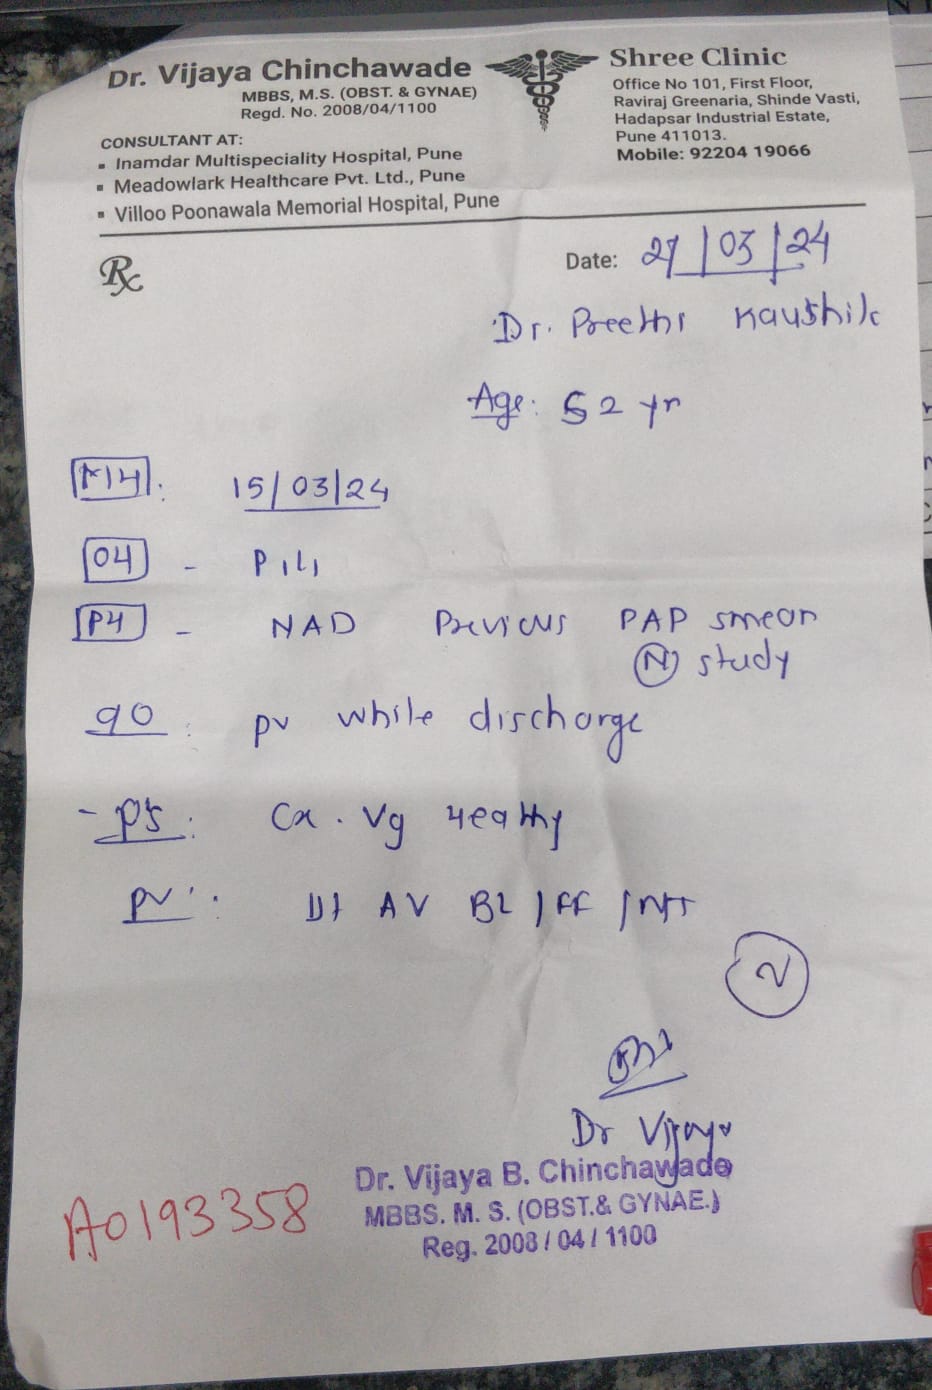 Dr. Vijaya Chinchawade
MBBS, M.S. (OBST. & GYNAE)
Regd. No. 2008/04/1100
CONSULTANT AT:
▪ Inamdar Multispeciality Hospital, Pune
▪ Meadowlark Healthcare Pvt. Ltd., Pune
▪ Villoo Poonawala Memorial Hospital, Pune
Shree Clinic
Office No 101, First Floor,
Raviraj Greenaria, Shinde Vasti,
Hadapsar Industrial Estate,
Pune 411013.
Mobile: 92204 19066
Rx
Date: 27/03/24
Dr. Preethi Kaushik
Age: 52 yr
MH: 15/03/24
OH - P1L1
PH - NAD Previous PAP smear
(N) study
qo: pv while discharge
- Ps: Cx. Vg Healthy
pv: Ut AV BL/FF/NT
2
Dr Vijaya
Dr. Vijaya B. Chinchawade
MBBS. M. S. (OBST.& GYNAE.)
Reg. 2008/04/1100
A0193358